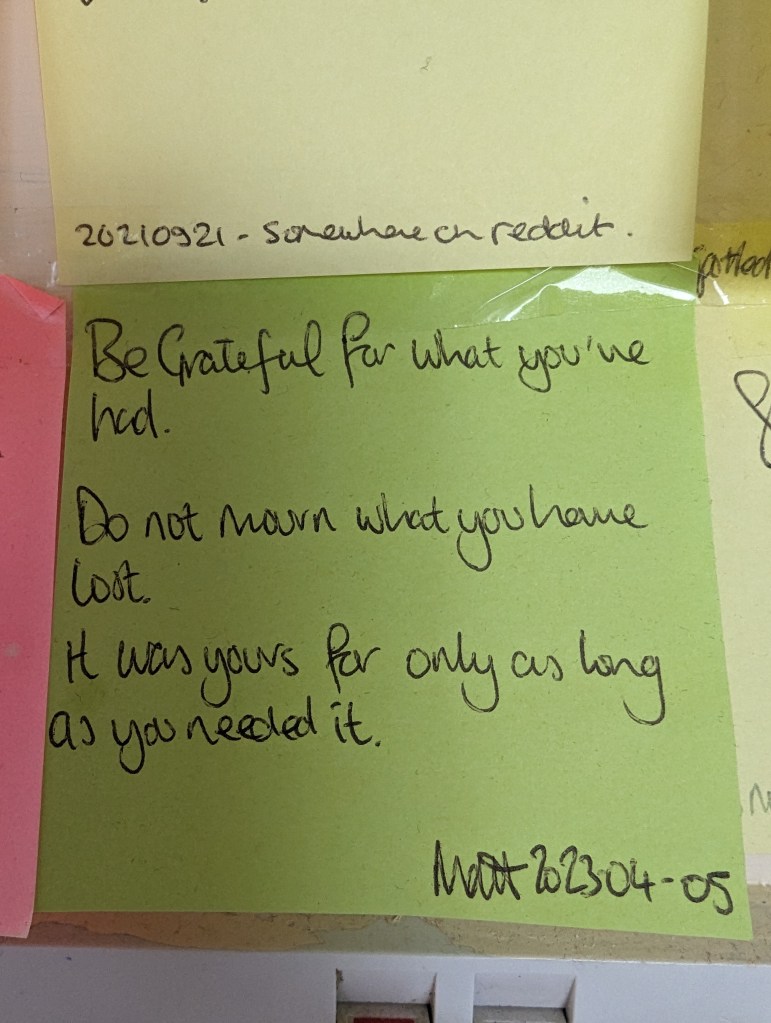 20210921 - Somewhere on reddit.
Be Grateful for what you've
had.
Do not mourn what you have
lost.
It was yours for only as long
as you needed it.
Matt 202304-05